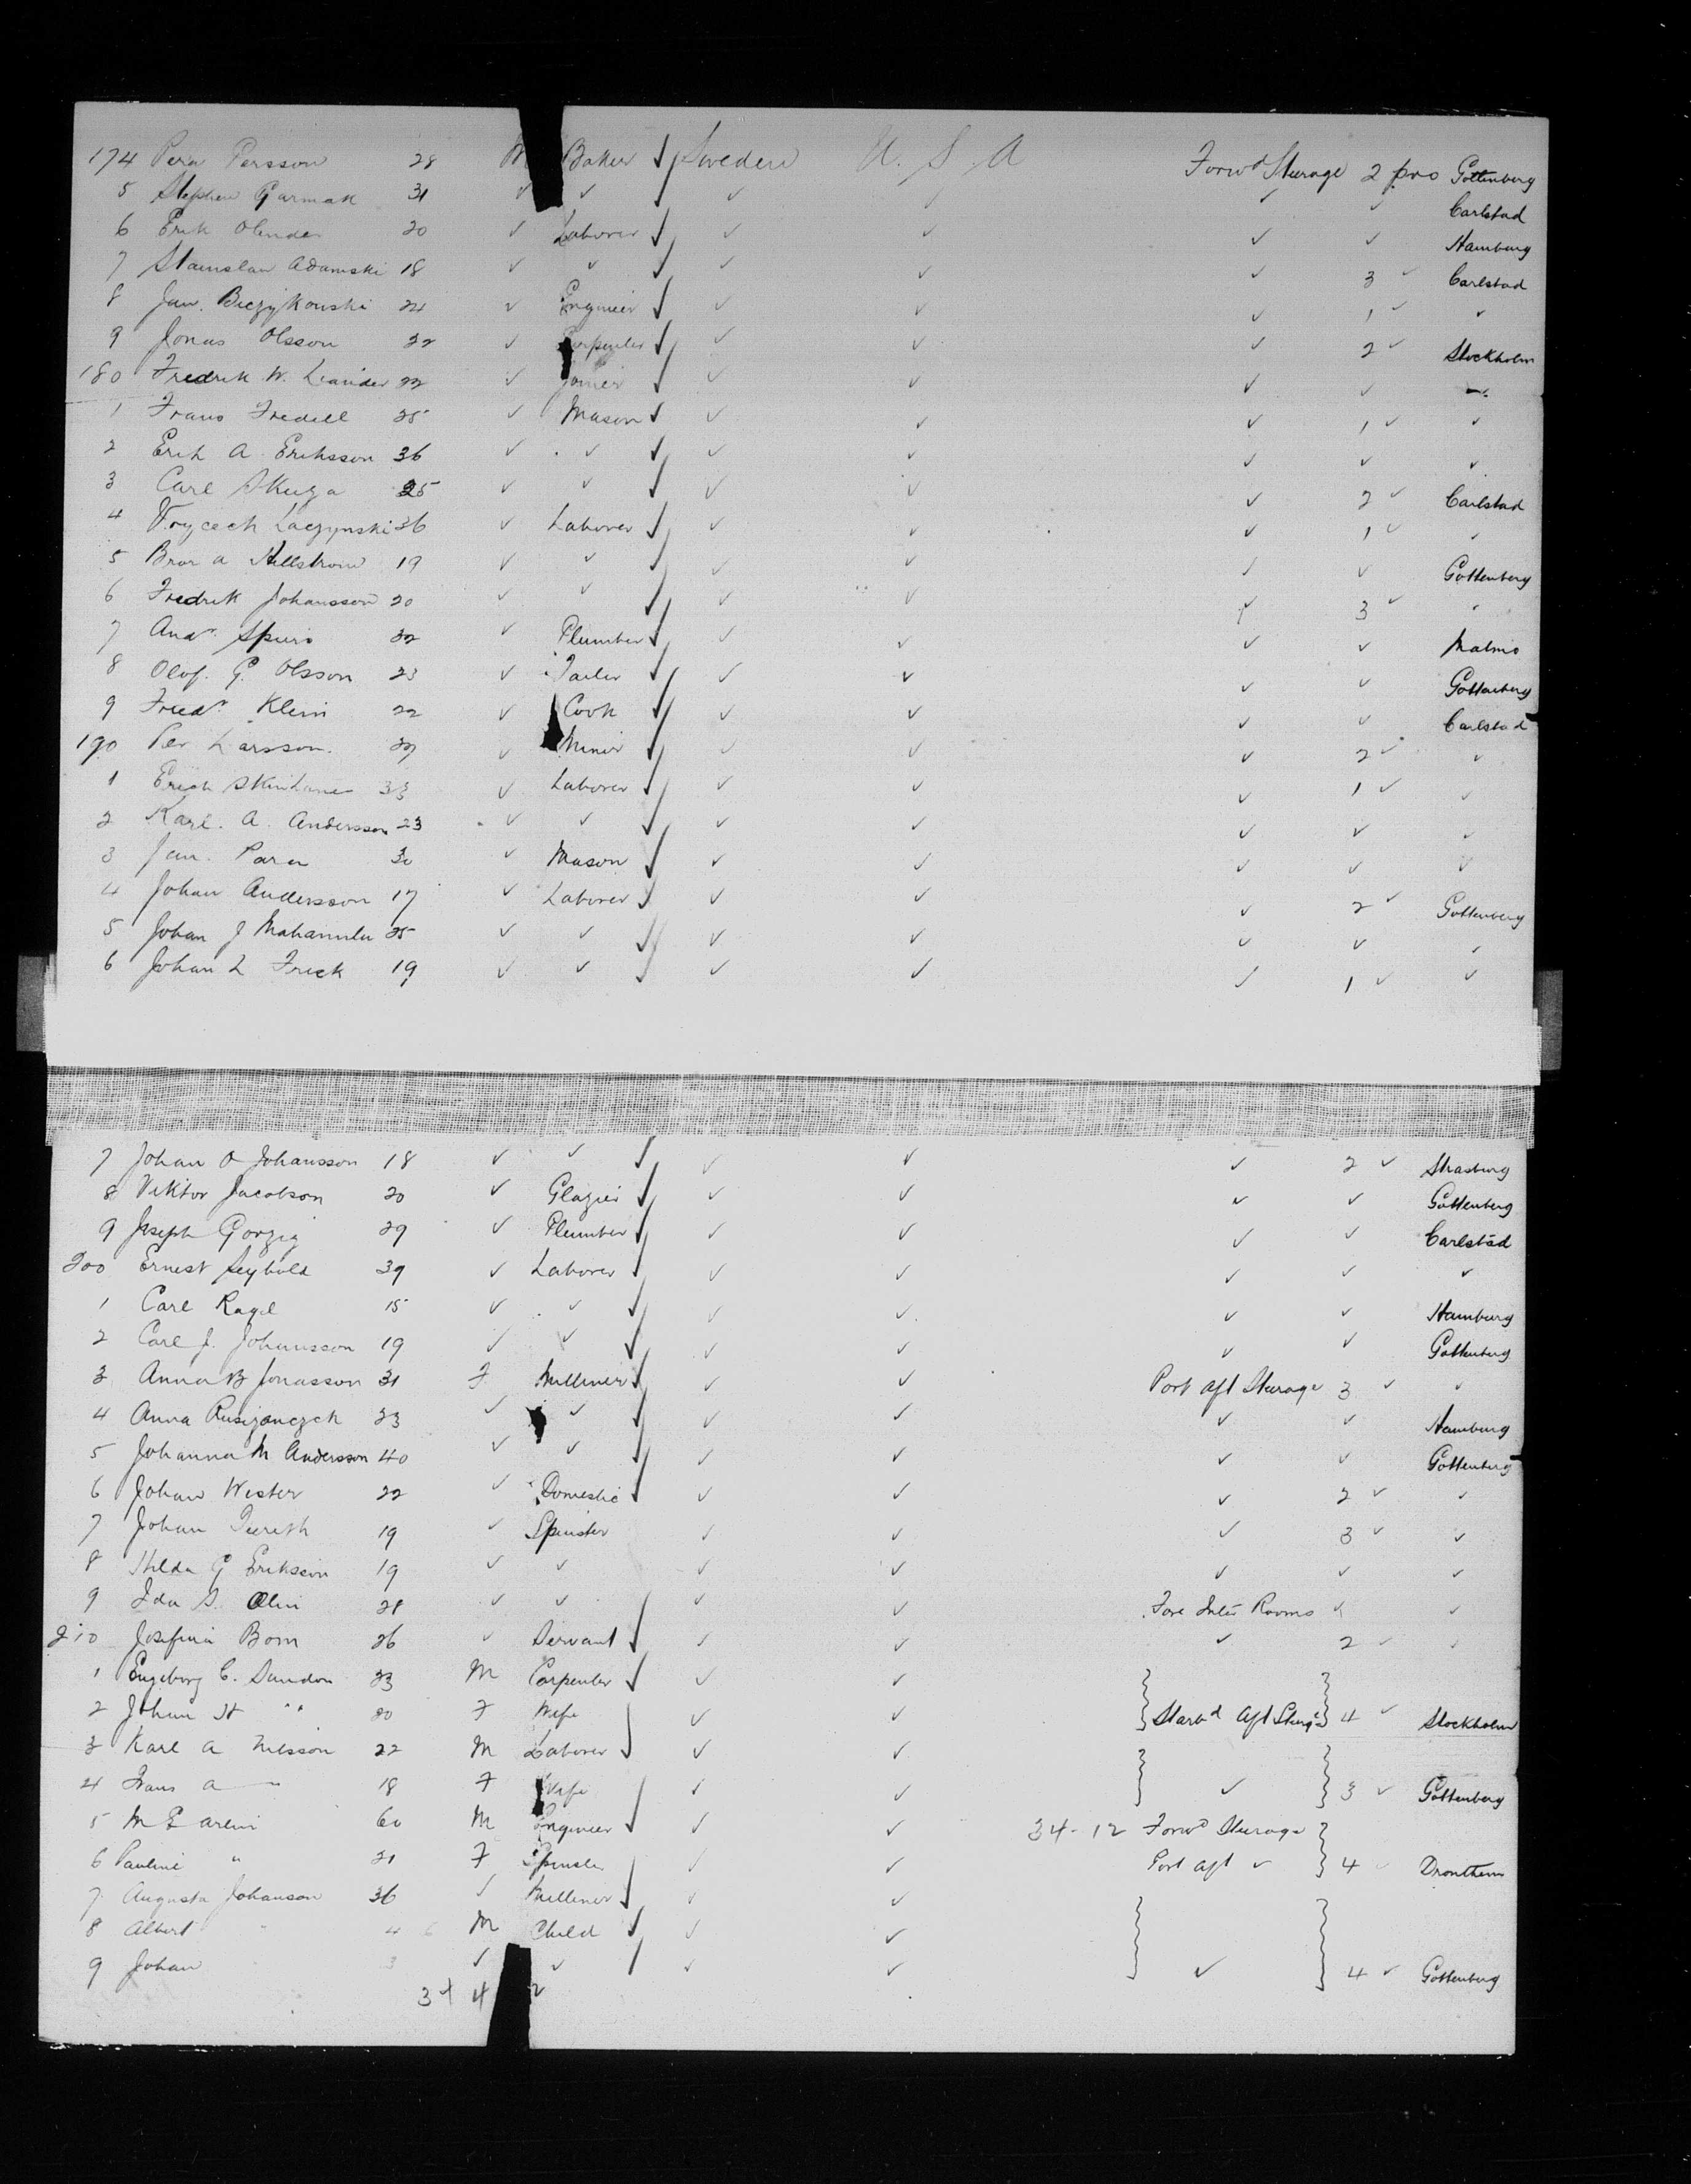 174 Pera Persson 28 M Baker ✓ Sweden U. S. A Forwd Steerage 2 pro Gottenberg
5 Stephen Garmak 31 ✓ ✓ ✓ ✓ ✓ ✓ Carlstad
6 Erik Olinder 20 ✓ Laborer ✓ ✓ ✓ ✓ ✓ Hamburg
7 Stanislaw Adamski 18 ✓ ✓ ✓ ✓ ✓ ✓ 3 ✓ Carlstad
8 Jan. 24 ✓ Engineer ✓ ✓ ✓ ✓ 1 ✓ ✓
9 Jonas Olsson 32 ✓ Carpenter ✓ ✓ ✓ ✓ 2 ✓ Stockholm
180 Fredrik W. Leander 22 ✓ Joiner ✓ ✓ ✓ ✓ ✓
1 Frans Fredell 25 ✓ Mason ✓ ✓ ✓ ✓ 1 ✓ ✓
2 Erik A Eriksson 36 ✓ ✓ ✓ ✓ ✓ ✓ ✓ ✓
3 Carl Skuza 25 ✓ ✓ ✓ ✓ ✓ ✓ 2 ✓ Carlstad
4 Laczynski 36 ✓ Laborer ✓ ✓ ✓ ✓ 1 ✓ ✓
5 Bror A Hellstrom 19 ✓ ✓ ✓ ✓ ✓ ✓ ✓ Gottenberg
6 Fredrik Johansson 20 ✓ ✓ ✓ ✓ ✓ ✓ 3 ✓ "
7 Andr. 32 ✓ Plumber ✓ ✓ ✓ ✓ ✓ Malmo
8 Olof. G. Olsson 23 ✓ Tailer ✓ ✓ ✓ ✓ ✓ Gottenberg
9 Fredr. Klein 22 ✓ Cook ✓ ✓ ✓ ✓ ✓ Carlstad
190 Per Larsson. ✓ Miner ✓ ✓ ✓ ✓ 2 ✓ ✓
1 Erich 33 ✓ Laborer ✓ ✓ ✓ ✓ 1 ✓ ✓
2 Karl. A. Andersson 23 ✓ ✓ ✓ ✓ ✓ ✓ ✓ ✓
3 Jan. Para 30 ✓ Mason ✓ ✓ ✓ ✓ ✓ ✓
4 Johan Andersson 17 ✓ Laborer ✓ ✓ ✓ ✓ 2 ✓ Gottenberg
5 Johan J 25 ✓ ✓ ✓ ✓ ✓ ✓ ✓ ✓
6 Johan L Frick 19 ✓ ✓ ✓ ✓ ✓ ✓ 1 ✓ ✓
7 Johan O Johansson 18 ✓ ✓ ✓ ✓ ✓ ✓ 2 ✓ Strasburg
8 Viktor Jacobson 20 ✓ Glazier ✓ ✓ ✓ ✓ ✓ Gottenberg
9 Joseph Gorzig 29 ✓ Plumber ✓ ✓ ✓ ✓ ✓ Carlstad
200 Ernest Seybold 39 ✓ Laborer ✓ ✓ ✓ ✓ ✓ ✓
1 Carl Ragel 15 ✓ ✓ ✓ ✓ ✓ ✓ ✓ Hamburg
2 Carl J. Johansson 19 ✓ ✓ ✓ ✓ ✓ ✓ ✓ Gottenberg
3 Anna B Jonasson 31 F Milliner ✓ ✓ ✓ Port Aft Steerage 3 ✓ ✓
4 Anna 23 ✓ ✓ ✓ ✓ ✓ ✓ ✓ Hamburg
5 Johanna M Andersson 40 ✓ ✓ ✓ ✓ ✓ ✓ ✓ Gottenberg
6 Johan Wester 22 ✓ Domestic ✓ ✓ ✓ ✓ 2 ✓ ✓
7 Johan 19 ✓ Spinster ✓ ✓ ✓ 3 ✓ ✓
8 Hilda G Eriksson 19 ✓ ✓ ✓ ✓ ✓ ✓ ✓
9 Ida S. Olin ✓ ✓ ✓ ✓ ✓ Fore Inter Rooms ✓ ✓
210 Josefina Bom 26 ✓ Servant ✓ ✓ ✓ ✓ 2 ✓ ✓
1 Engeborg C. 23 M Carpenter ✓ ✓ ✓
2 Johan H " 20 F Wife ✓ ✓ Starbd Aft Sterge 4 ✓ Stockholm
3 Karl A Nilsson 22 M Laborer ✓ ✓ ✓
4 Frans A " 18 F Wife ✓ ✓ ✓ 3 ✓ Gottenberg
5 M E Arlin 60 M Engineer ✓ ✓ ✓ 34-12 Forwd Steerage
6 Pauline " 21 F Spinster ✓ ✓ Port aft ✓ 4 ✓ Drontheim
7 Augusta Johanson 36 ✓ Milliner ✓ ✓ ✓
8 Albert " 4 M Child ✓ ✓ ✓
9 Johan 3 ✓ ✓ ✓ ✓ ✓ ✓ 4 ✓ Gottenberg
34 4 2